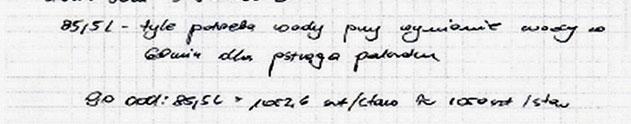 85,5 l - tyle potrzeba wody przy wymianie wody w
60 min dla pstrąga
90 000 : 85,5 l = 1052,6 szt/staw ≈ 1050 szt/staw